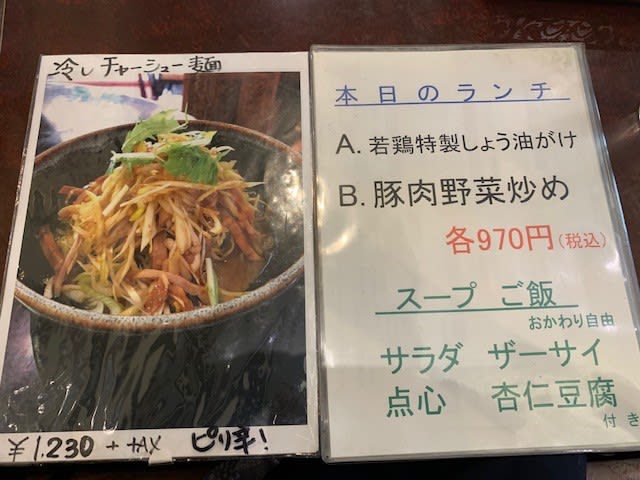 冷し チャーシュー 麺
¥1,230 + TAX ピリ辛!
本日のランチ
A. 若鶏特製しょう油がけ
B. 豚肉野菜炒め
各970円(税込)
スープ ご飯
おかわり自由
サラダ ザーサイ
点心 杏仁豆腐
付き